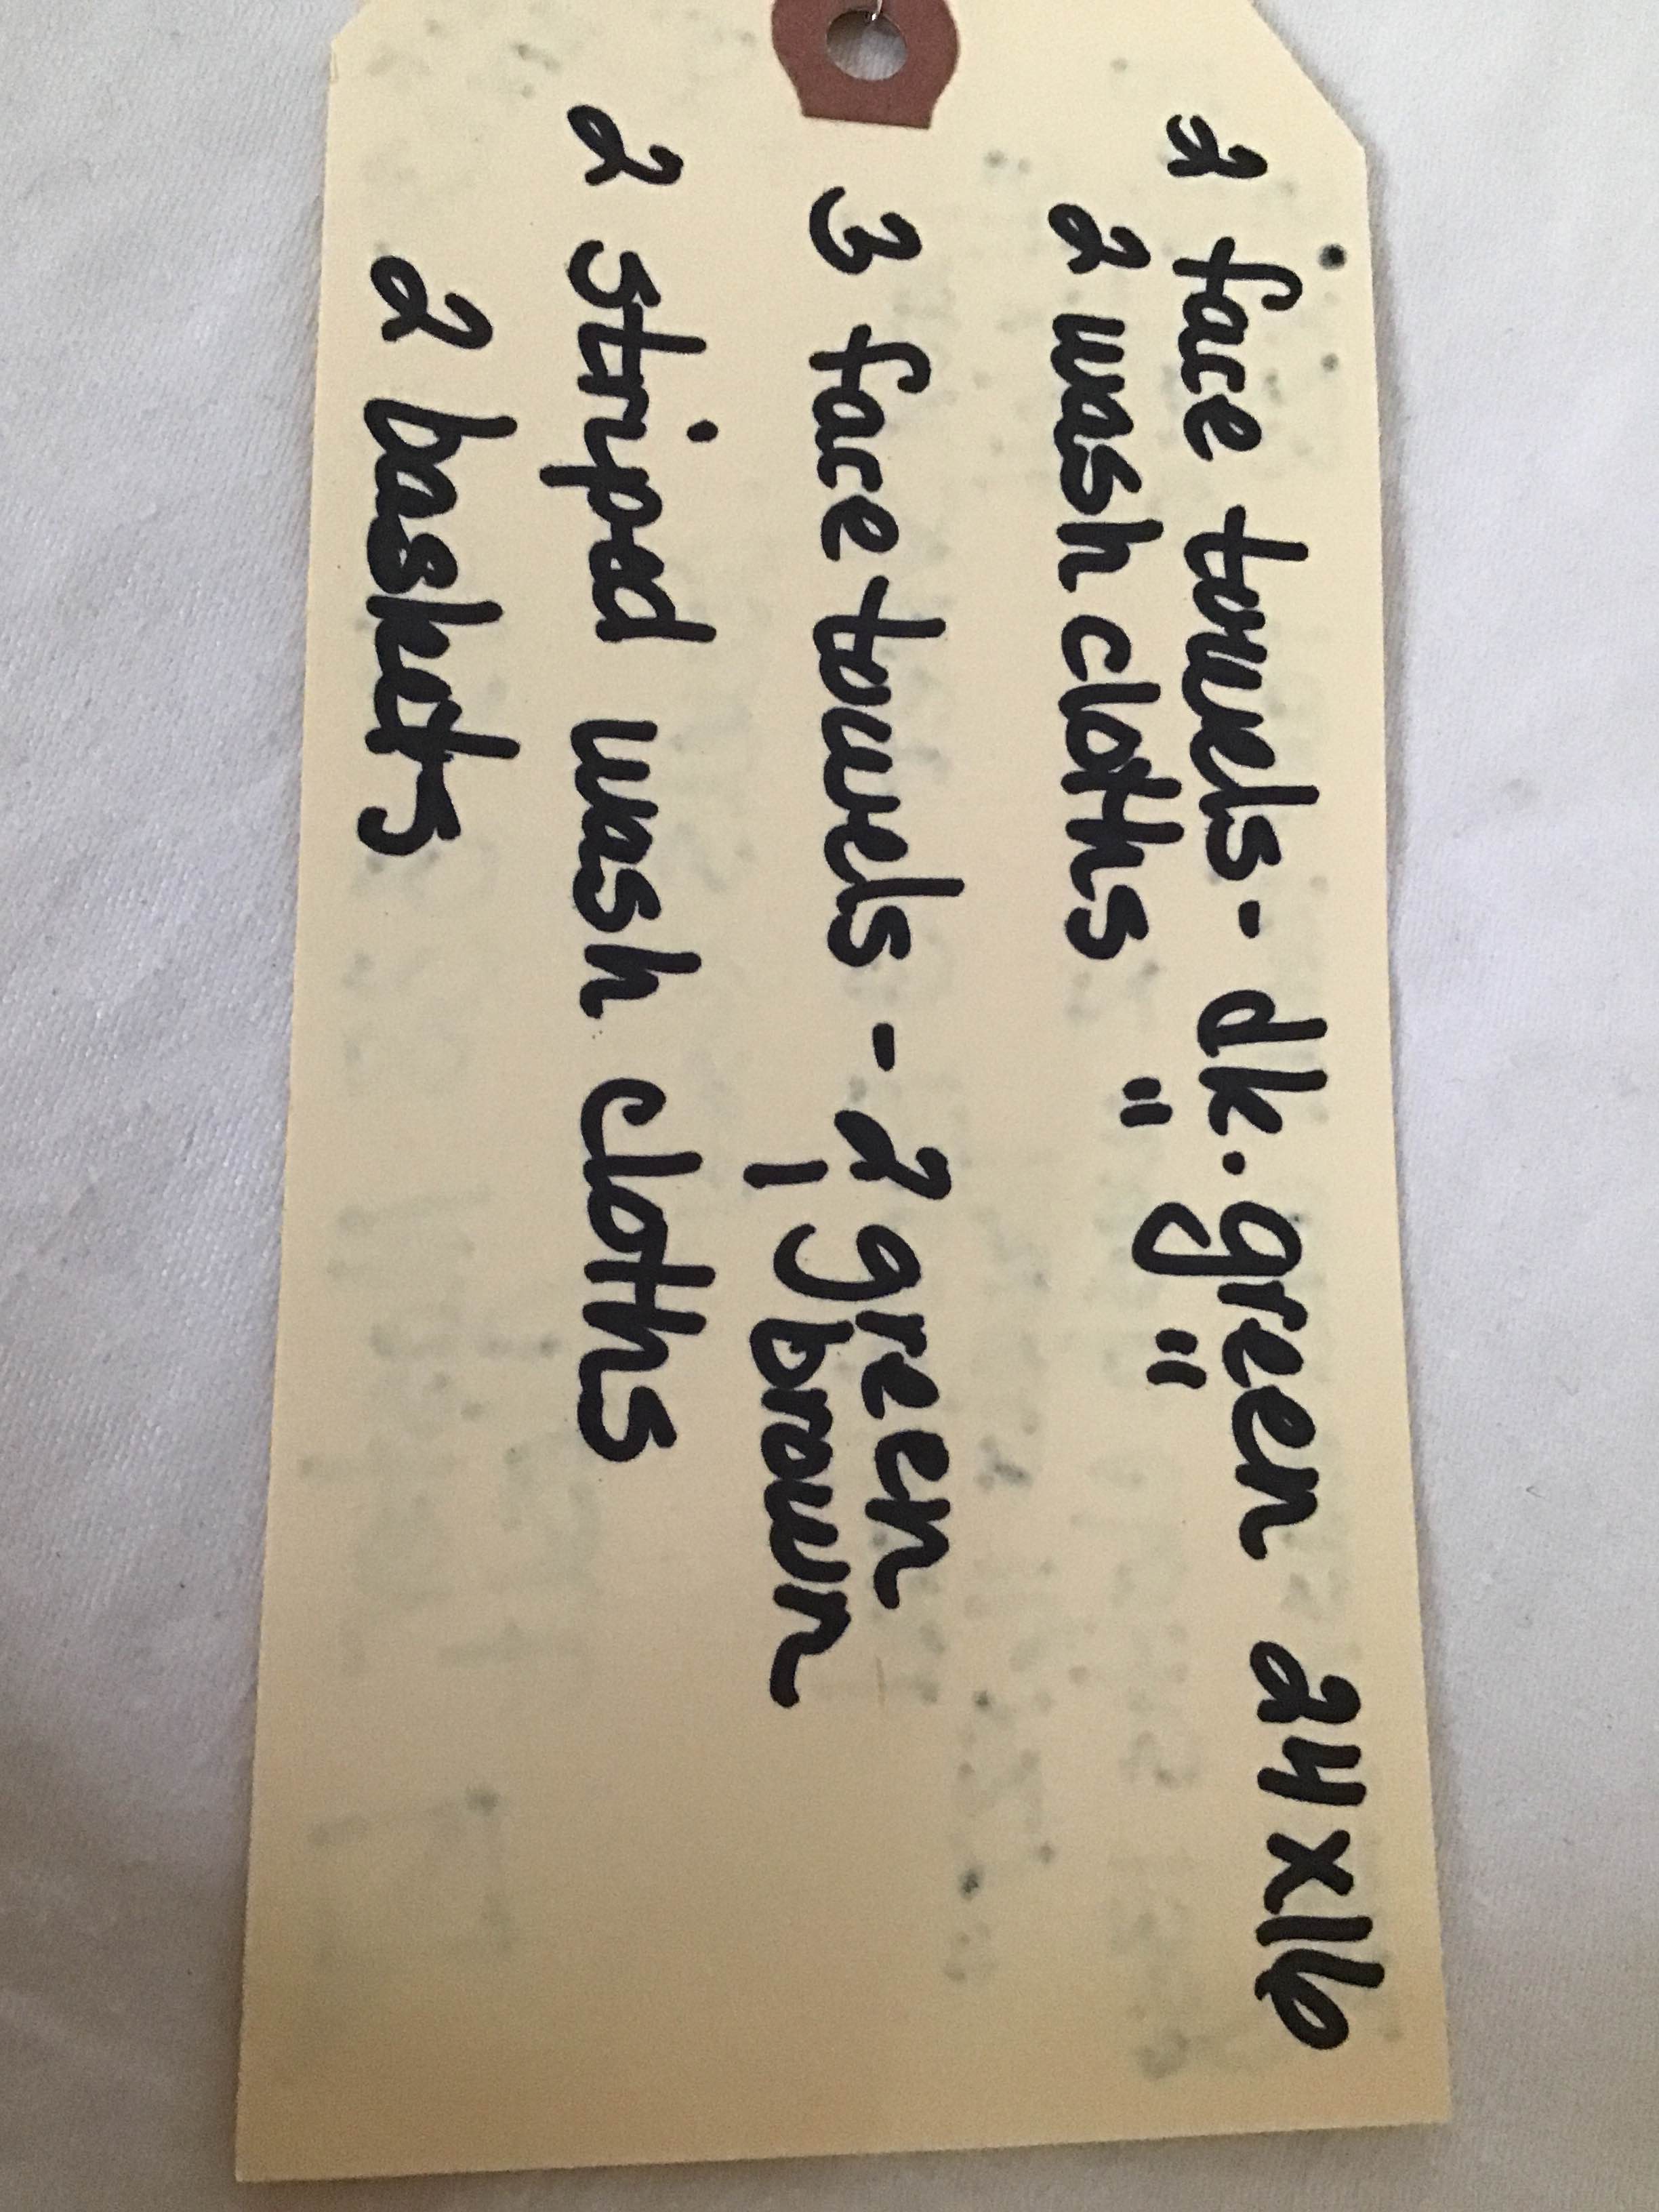 2 face towels - dk. green 24x16
2 wash cloths " "
3 face towels - 2 green
1 brown
2 striped wash cloths
2 baskets